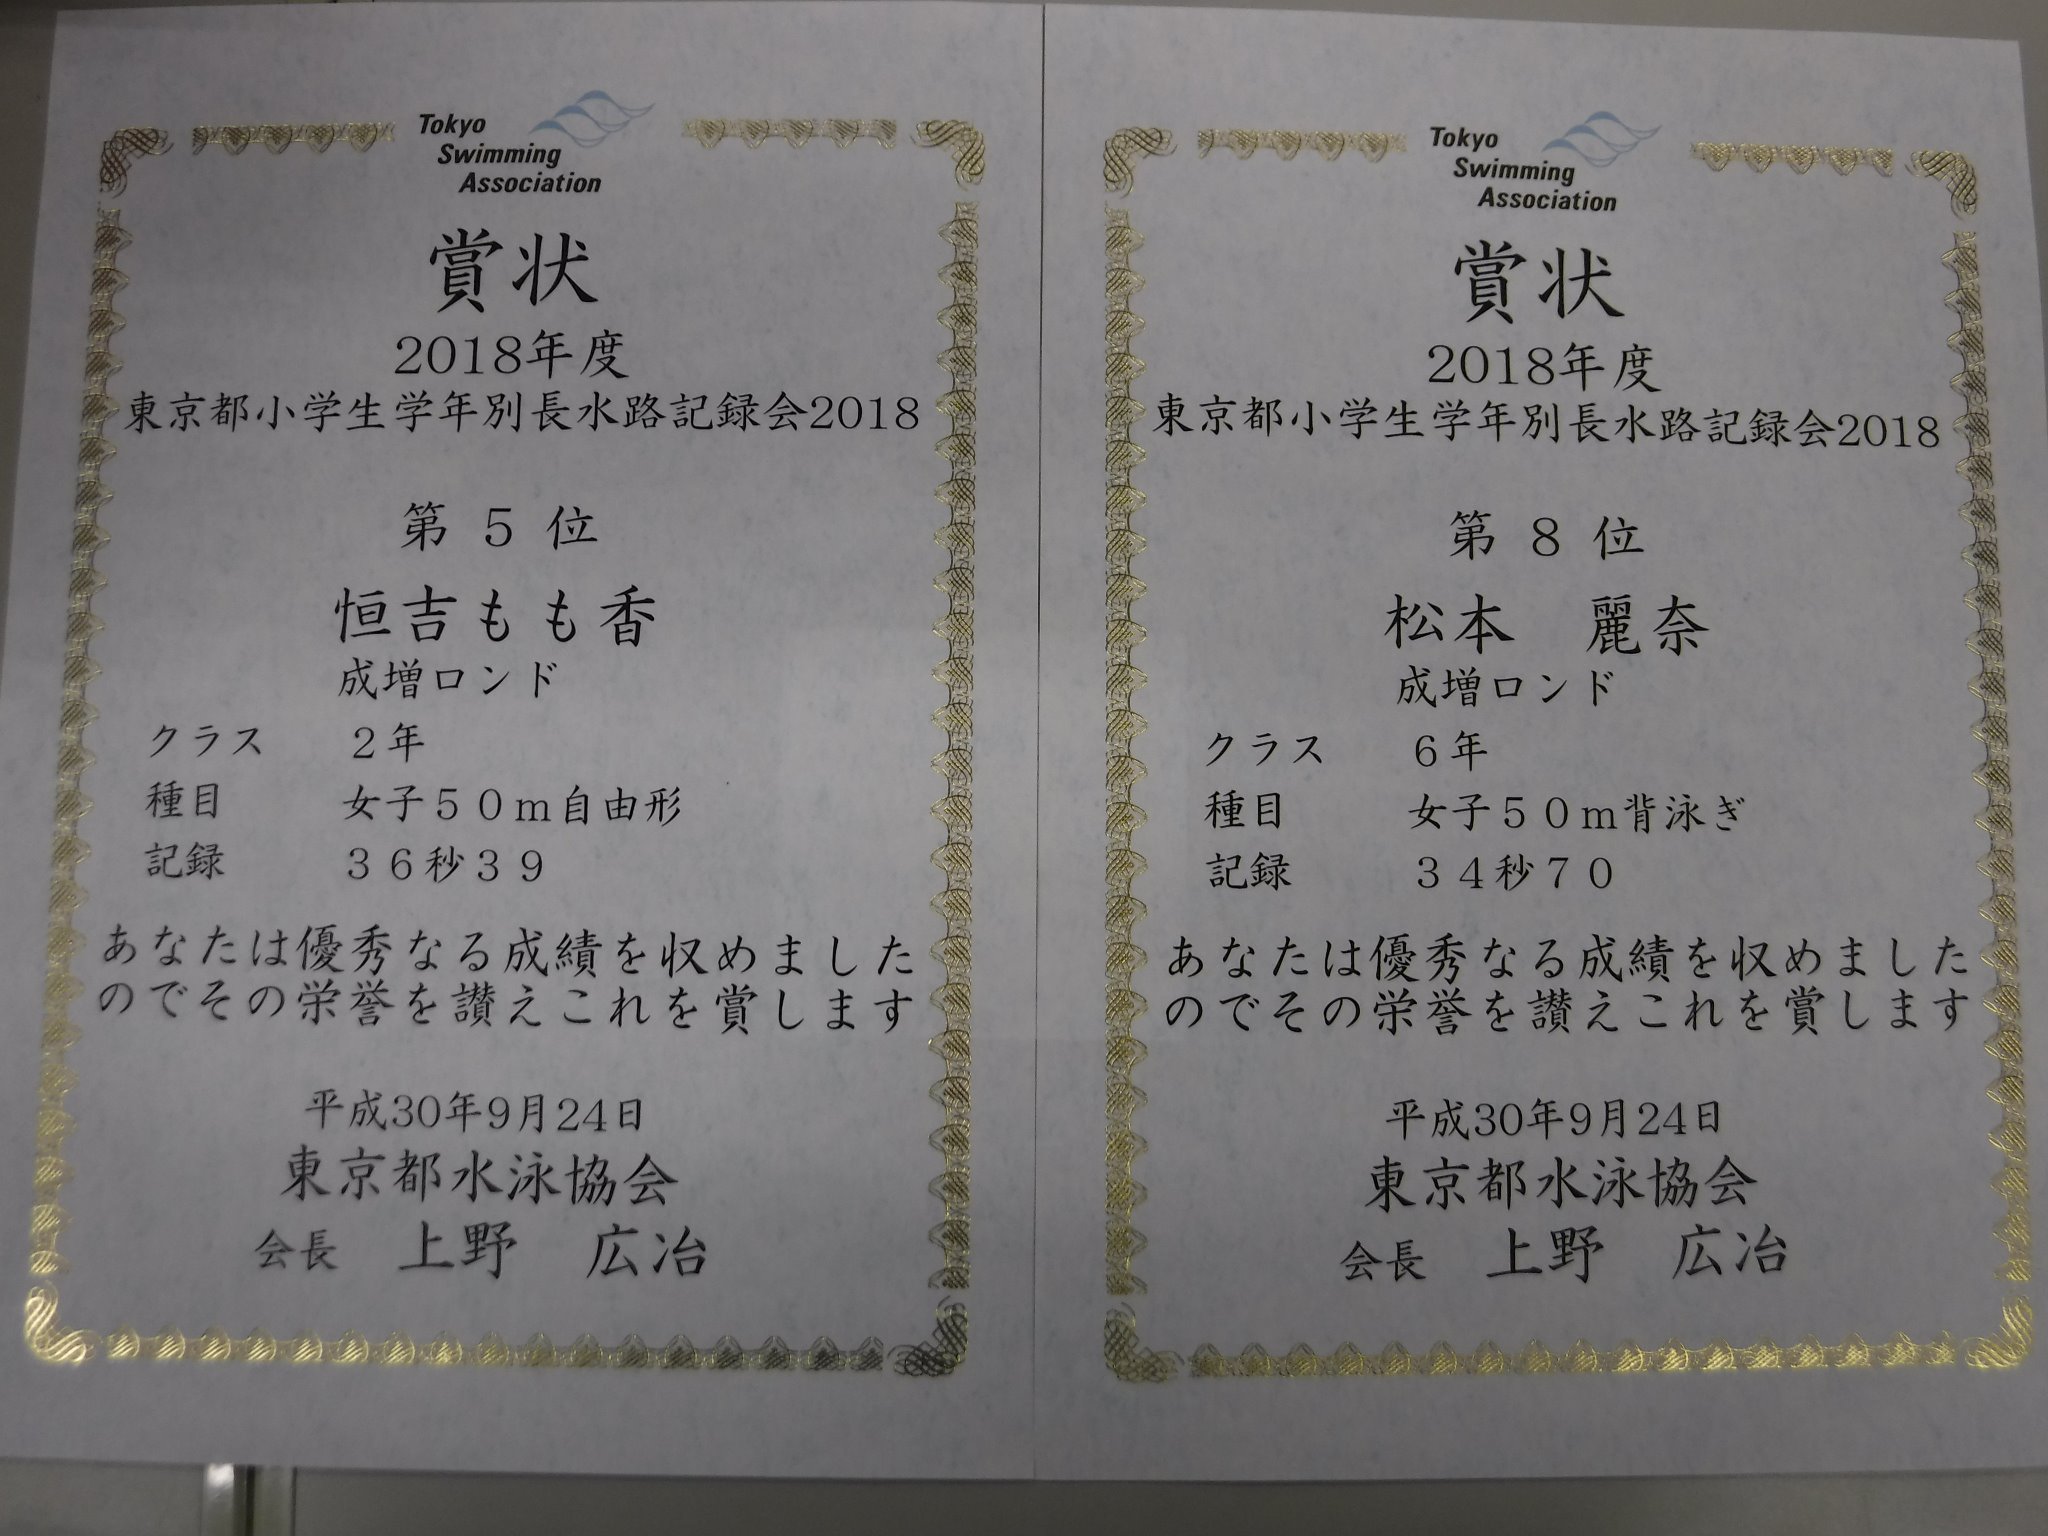 Tokyo
Swimming
Association
賞状
2018年度
東京都小学生学年別長水路記録会2018
第 5 位
恒吉もも香
成増ロンド
クラス 2年
種目 女子50m自由形
記録 36秒39
あなたは優秀なる成績を収めました
のでその栄誉を讃えこれを賞します
平成30年9月24日
東京都水泳協会
会長 上野 広治
Tokyo
Swimming
Association
賞状
2018年度
東京都小学生学年別長水路記録会2018
第 8 位
松本 麗奈
成増ロンド
クラス 6年
種目 女子50m背泳ぎ
記録 34秒70
あなたは優秀なる成績を収めました
のでその栄誉を讃えこれを賞します
平成30年9月24日
東京都水泳協会
会長 上野 広治